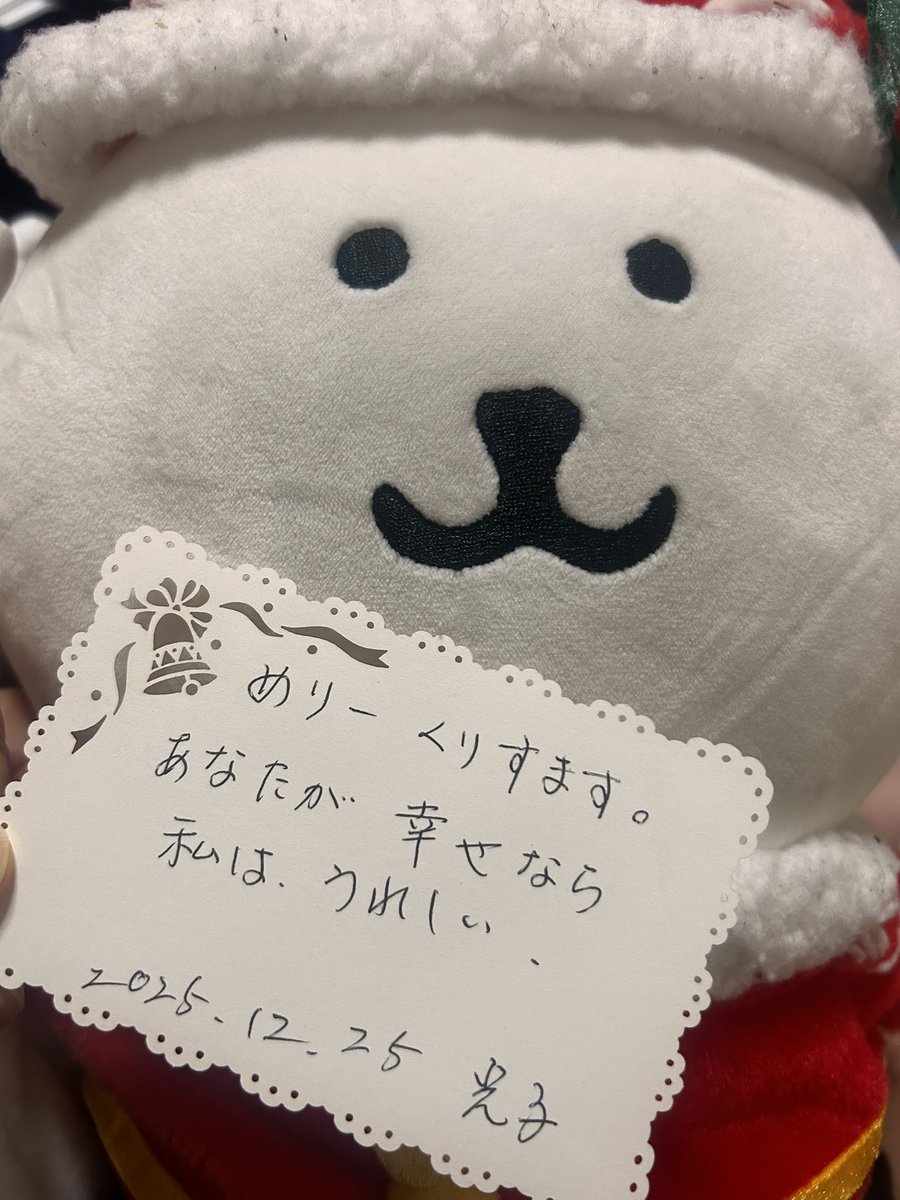 めりー くりすます。
あなたが 幸せなら
私は、うれしい、
2025.12.25 光子